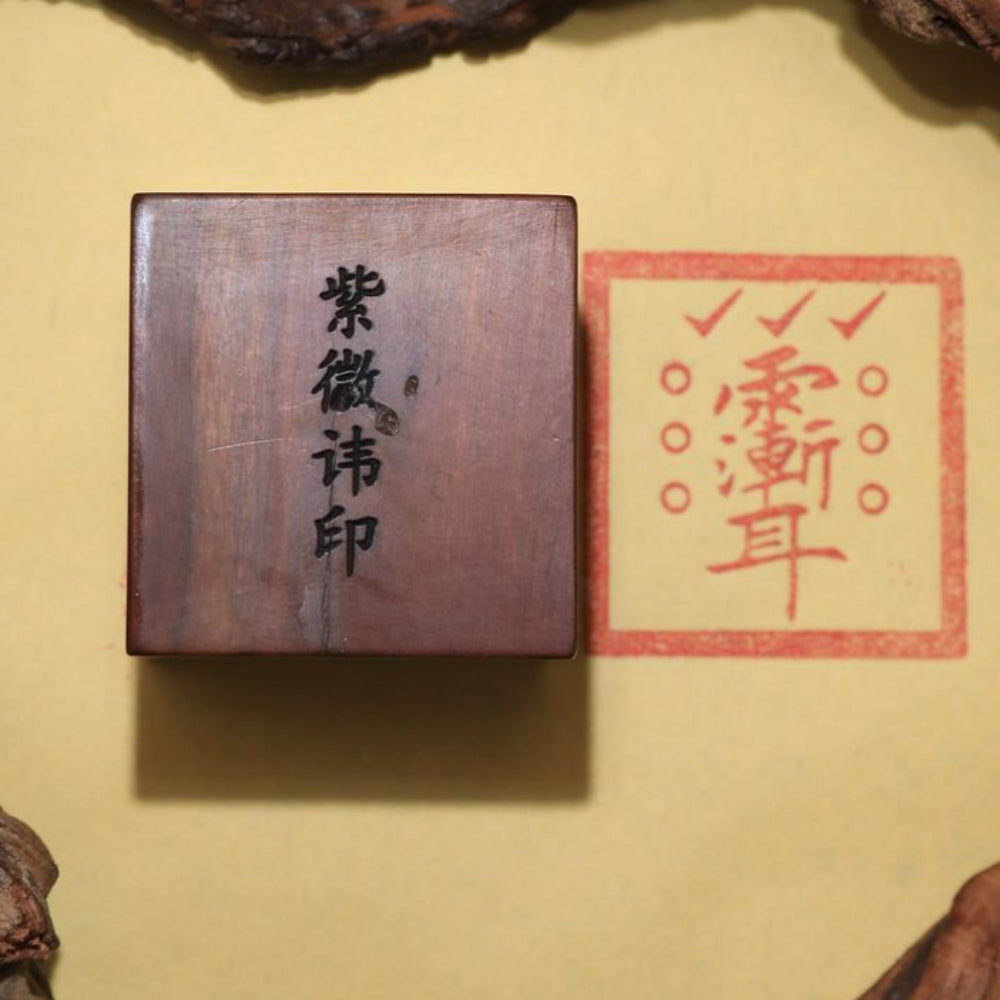 紫微讳印